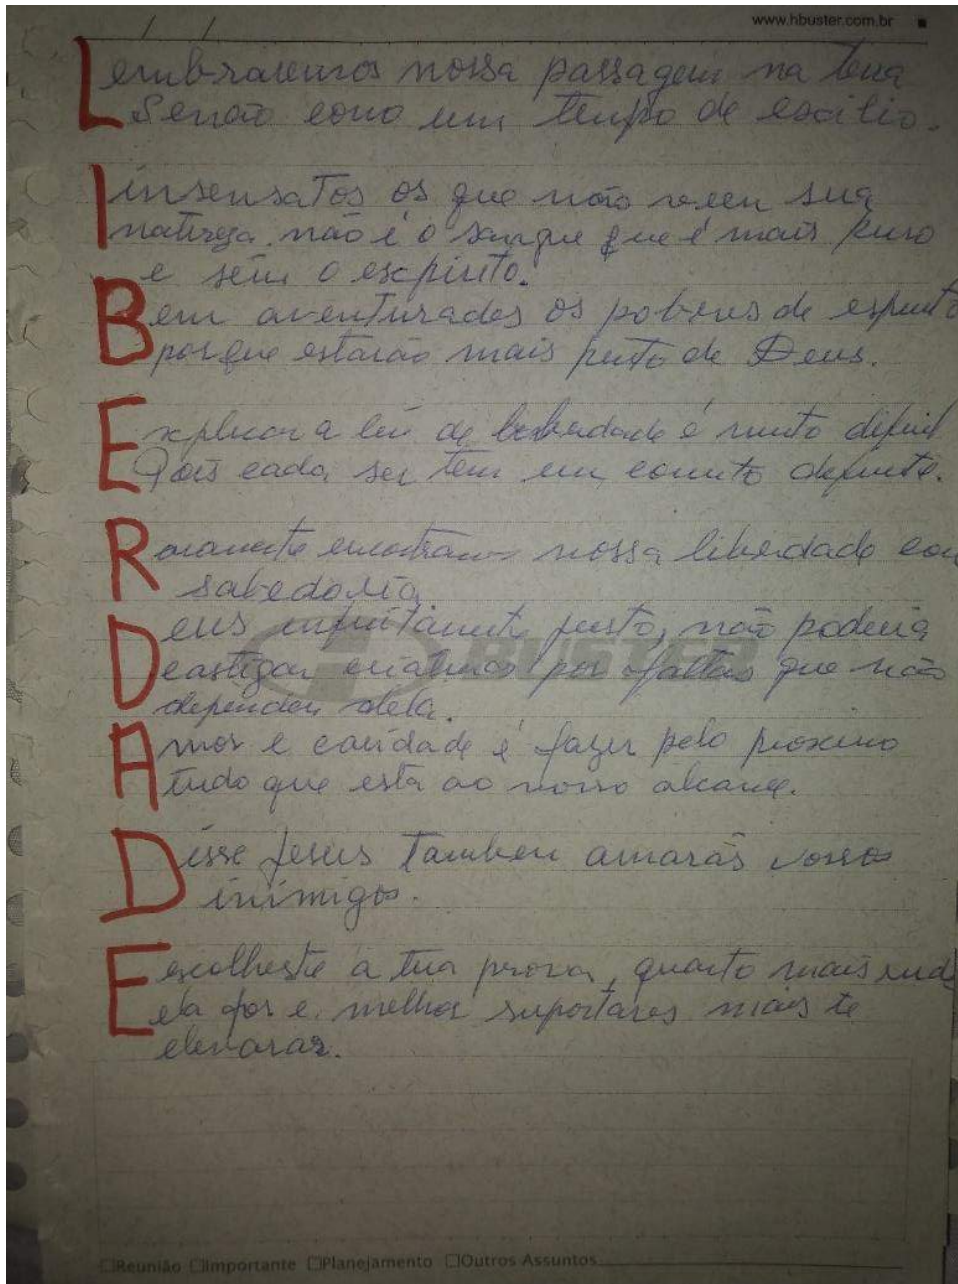 www.hbuster.com.br
Lembraremos nossa passagem na terra
Senão como um tempo de exilio.
Iinsensatos os que não veem sua
natureza. não é o sangue que é mais puro
e sim o espirito.
Bem aventurados os pobres de espirito
porque estarão mais perto de Deus.
Explicar a lei de liberdade é muito dificil
Pois cada ser tem um conceito diferente.
Raramente encontramos nossa liberdade com
sabedoria
Deus infinitamente justo, não poderia
castigar criaturas por faltas que não
dependeu dela.
BUSTER
Amor e caridade é fazer pelo proximo
tudo que está ao nosso alcance.
Disse Jesus tambem amarás vossos
inimigos.
Escolheste a tua prova, quanto mais rude
ela for e melhor suportares mais te
elevaras.
Reunião Importante Planejamento Outros Assuntos